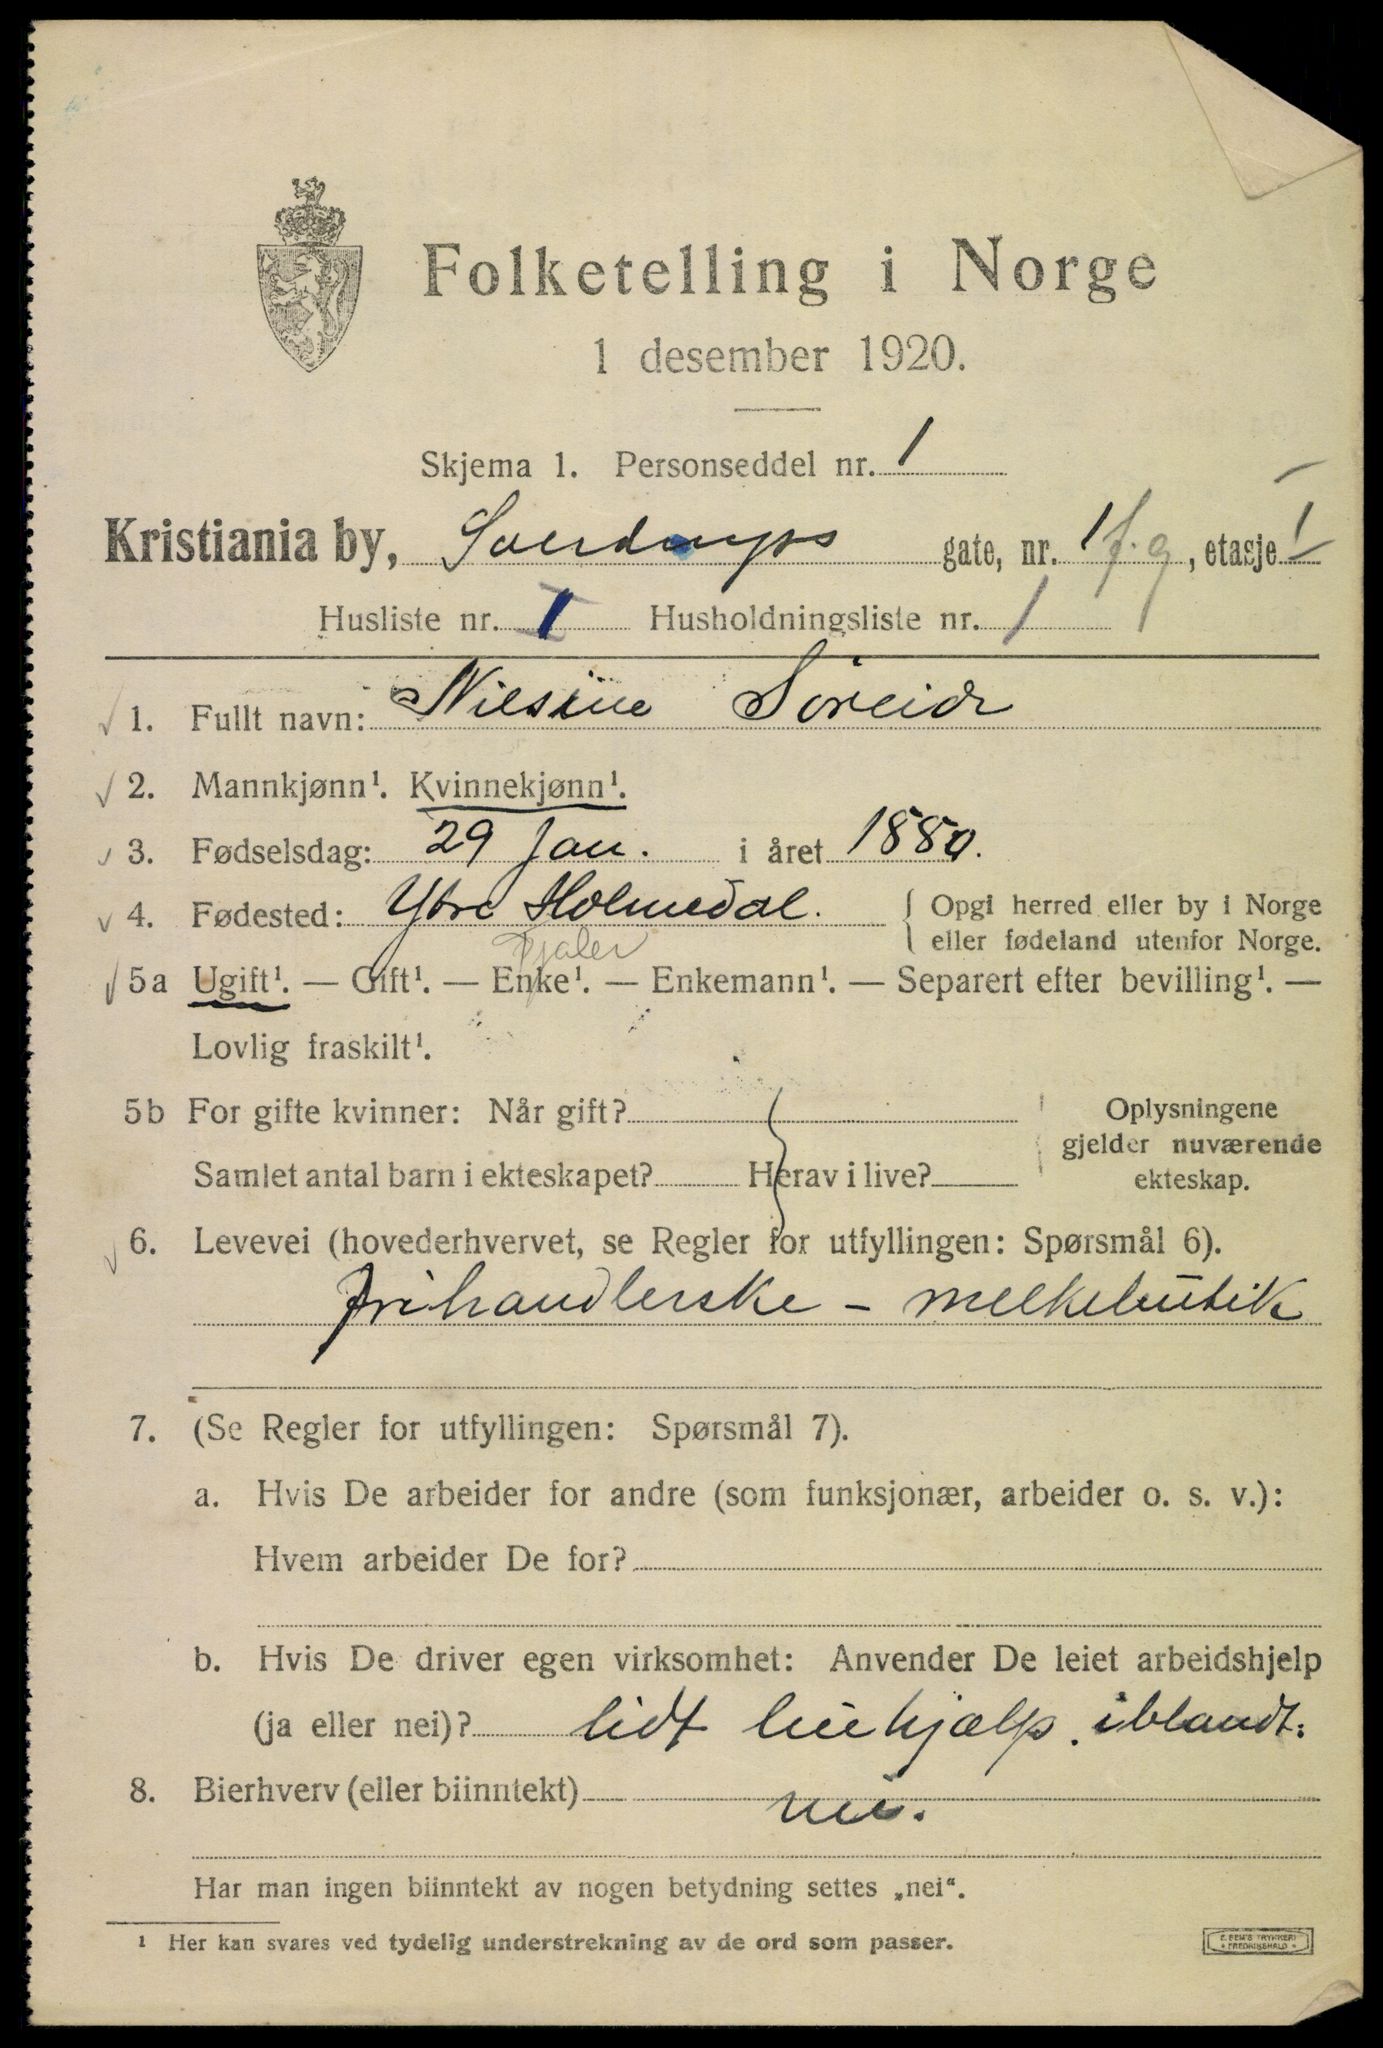 Folketelling i Norge
1 desember 1920.
Skjema 1. Personseddel nr. 1
Kristiania by, Sverdrups gate, nr. 1 f. g, etasje 1
Husliste nr. 1 Husholdningsliste nr. 1
1. Fullt navn: Nilsine Söreide
2. Mannkjønn¹. Kvinnekjønn¹.
3. Fødselsdag: 29 Jan. i året 1880.
4. Fødested: Ytre Holmedal. Opgi herred eller by i Norge
eller fødeland utenfor Norge.
Fjaler
5a Ugift¹. — Gift¹. — Enke¹. — Enkemann¹. — Separert efter bevilling¹. —
Lovlig fraskilt¹.
5b For gifte kvinner: Når gift? Oplysningene
gjelder nuværende
Samlet antal barn i ekteskapet? Herav i live? ekteskap.
6. Levevei (hovederhvervet, se Regler for utfyllingen: Spørsmål 6).
frihandlerske - melkebutik
7. (Se Regler for utfyllingen: Spørsmål 7).
a. Hvis De arbeider for andre (som funksjonær, arbeider o. s. v.):
Hvem arbeider De for?
b. Hvis De driver egen virksomhet: Anvender De leiet arbeidshjelp
(ja eller nei)? lidt leiehjælp. iblandt.
8. Bierhverv (eller biinntekt) nei.
Har man ingen biinntekt av nogen betydning settes „nei“.
¹ Her kan svares ved tydelig understrekning av de ord som passer.
E. SEM'S TRYKKERI
FREDRIKSHALD